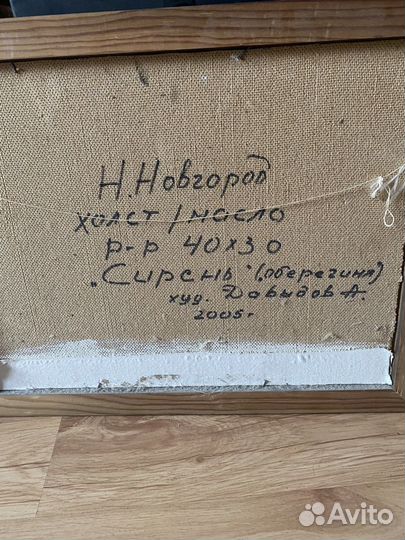 Н. Новгород
холст / масло
р-р 40х30
„Сирень" (оберегиня)
худ. Давыдов А.
2005г
Avito